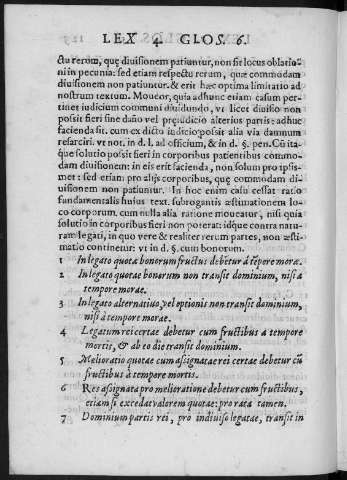 LEX 4. GLOS. 6.
ctu rerum, quę diuisionem patiuntur, non sit locus oblatio-
ni in pecunia: sed etiam respectu rerum, quæ commodam
diuisionem non patiuntur. & erit hæc optima limitatio ad
nostrum textum. Moueor, quia adhuc etiam casum per-
tinet iudicium communi diuidundo, vt licet diuisio non
possit fieri sine dãno vel pręiudicio alterius partis: adhuc
facienda sit. cum ex dicto iudicio possit alia via damnum
resarciri. vt not. in d. l. ad officium, & in d. §. pen. Cũ ita-
que solutio possit fieri in corporibus patientibus commo-
dam diuisionem: in eis erit facienda, non solum pro ipsis-
met: sed etiam pro alijs corporibus, quę commodam di-
uisionem non patiuntur. In hoc enim casu cessat ratio
fundamentalis huius text. subrogantis æstimationem lo-
co corporum. cum nulla alia ratione moueatur, nisi quia
solutio in corporibus fieri non poterat: idque contra natu-
ram legati, in quo vere & realiter rerum partes, non æsti-
matio continetur: vt in d. §. cum bonorum.
1 In legato quotæ bonorum fructus debetur à tẽpore moræ.
2 In legato quotæ bonarum non transit dominium, nisi a
tempore moræ.
3 In legato alternatiuo, vel optionis non transit dominium,
nisi à tempore moræ.
4 Legatum rei certæ debetur cum fructibus a tempore
mortis, & ab eo die transit dominium.
5 Melioratio quotæ cum assignatæ rei certæ debetur cũ
fructibus à tempore mortis.
6 Res assignata pro melioratione debetur cum fructibus,
etiam si excedat valorem quotæ: pro rata tamen.
7 Dominium partis rei, pro indiuiso legatæ, transit in